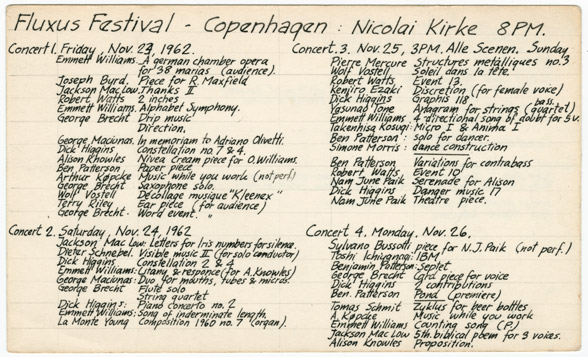 Fluxus Festival - Copenhagen : Nicolai Kirke 8 PM.
Concert 1. Friday, Nov. 23, 1962.
Emmett Williams. A german chamber opera
for 38 marias (audience).
Joseph Byrd. Piece for R. Maxfield
Jackson Mac Low. Thanks II
Robert Watts 2 inches
Emmett Williams. Alphabet Symphony.
George Brecht Drip music
Direction,
George Maciunas. In memoriam to Adriano Olivetti.
Dick Higgins Constellation no 7 & 4.
Alison Knowles Nivea Cream piece for O. Williams.
Ben Patterson. Paper piece,
Arthur Køpcke Music while you work (not perf.)
George Brecht Saxophone solo.
Wolf Vostell Décollage musique "Kleenex"
Terry Riley Ear piece (for audience)
George Brecht. Word event. "
Concert 2. Saturday, Nov. 24, 1962
Jackson Mac Low: Letters for Iris numbers for silence.
Dieter Schnebel. Visible music II (for solo conductor)
Dick Higgins Constellation 2 & 4
Emmett Williams: Litany & responce (for A. Knowles)
George Maciunas: Duo for mouths, tubes & micros.
George Brecht Flute solo
String quartet
Dick Higgins: Piano Concerto no. 2
Emmett Williams: Song of inderminate length,
La Monte Young Composition 1960 no. 7 (organ).
Concert. 3. Nov. 25, 3PM. Alle Scenen. Sunday
Pierre Mercure Structures metálliques no. 3
Wolf Vostell Soleil dans la tête.
Robert Watts Event 13.
Kenjiro Ezaki Discretion (for female voice)
Dick Higgins Graphis 118
Yasunao Tone Anagram for strings (quartet)
Emmett Williams 4 directional song of doubt for 5 v.
bass.
Takenhisa Kosugi: Micro I & Anima I
Ben Patterson : Solo for dancer.
Simone Morris : dance construction
Ben Patterson Variations for contrabass
Robert Watts, Event 10
Nam June Paik Serenade for Alison
Dick Higgins Danger music 17
Nam June Paik Theatre piece.
Concert 4. Monday. Nov. 26.
Sylvano Bussotti piece for N.J. Paik (not perf.)
Toshi Ichiyanagi: IBM
Benjamin Patterson: Septet
George Brecht Card piece for voice
Dick Higgins 2 contributions
Ben. Patterson Pond (premiere)
Tomas Schmit Zyklus for beer bottles,
A. Køpcke Music while you work
Emmett Williams Counting song (P.)
Jackson Mac Low 5th. biblical poem for 3 voices.
Alison Knowles Proposition.